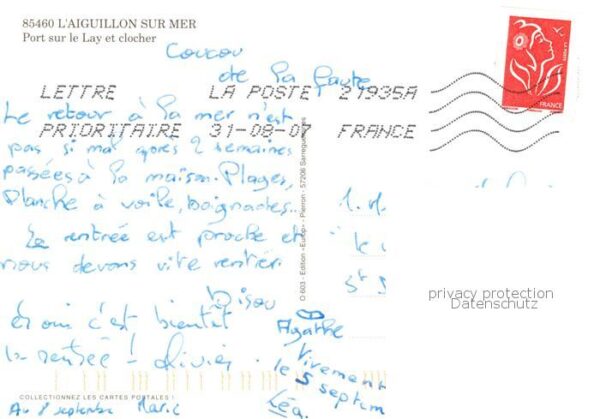 85460 L'AIGUILLON SUR MER
Port sur le Lay et clocher
Coucou
de la Faute
LETTRE LA POSTE 21935A
PRIORITAIRE 31-08-07 FRANCE
LA POSTE
FRANCE
Le retour à la mer n'est
pas si mal après 2 semaines
passées à la maison. Plages,
Planche à voile, baignades...
La rentrée est proche et
nous devons vite rentrer.
Bisou
Et oui c'est bientôt
la rentrée ! Olivier.
Agathe
Vivement
le 5 septem
Léa.
Au 8 septembre
O 603 - Edition «Europ» - Pierron - 57206 Sarreguemines
COLLECTIONNEZ LES CARTES POSTALES !
privacy protection
Datenschutz